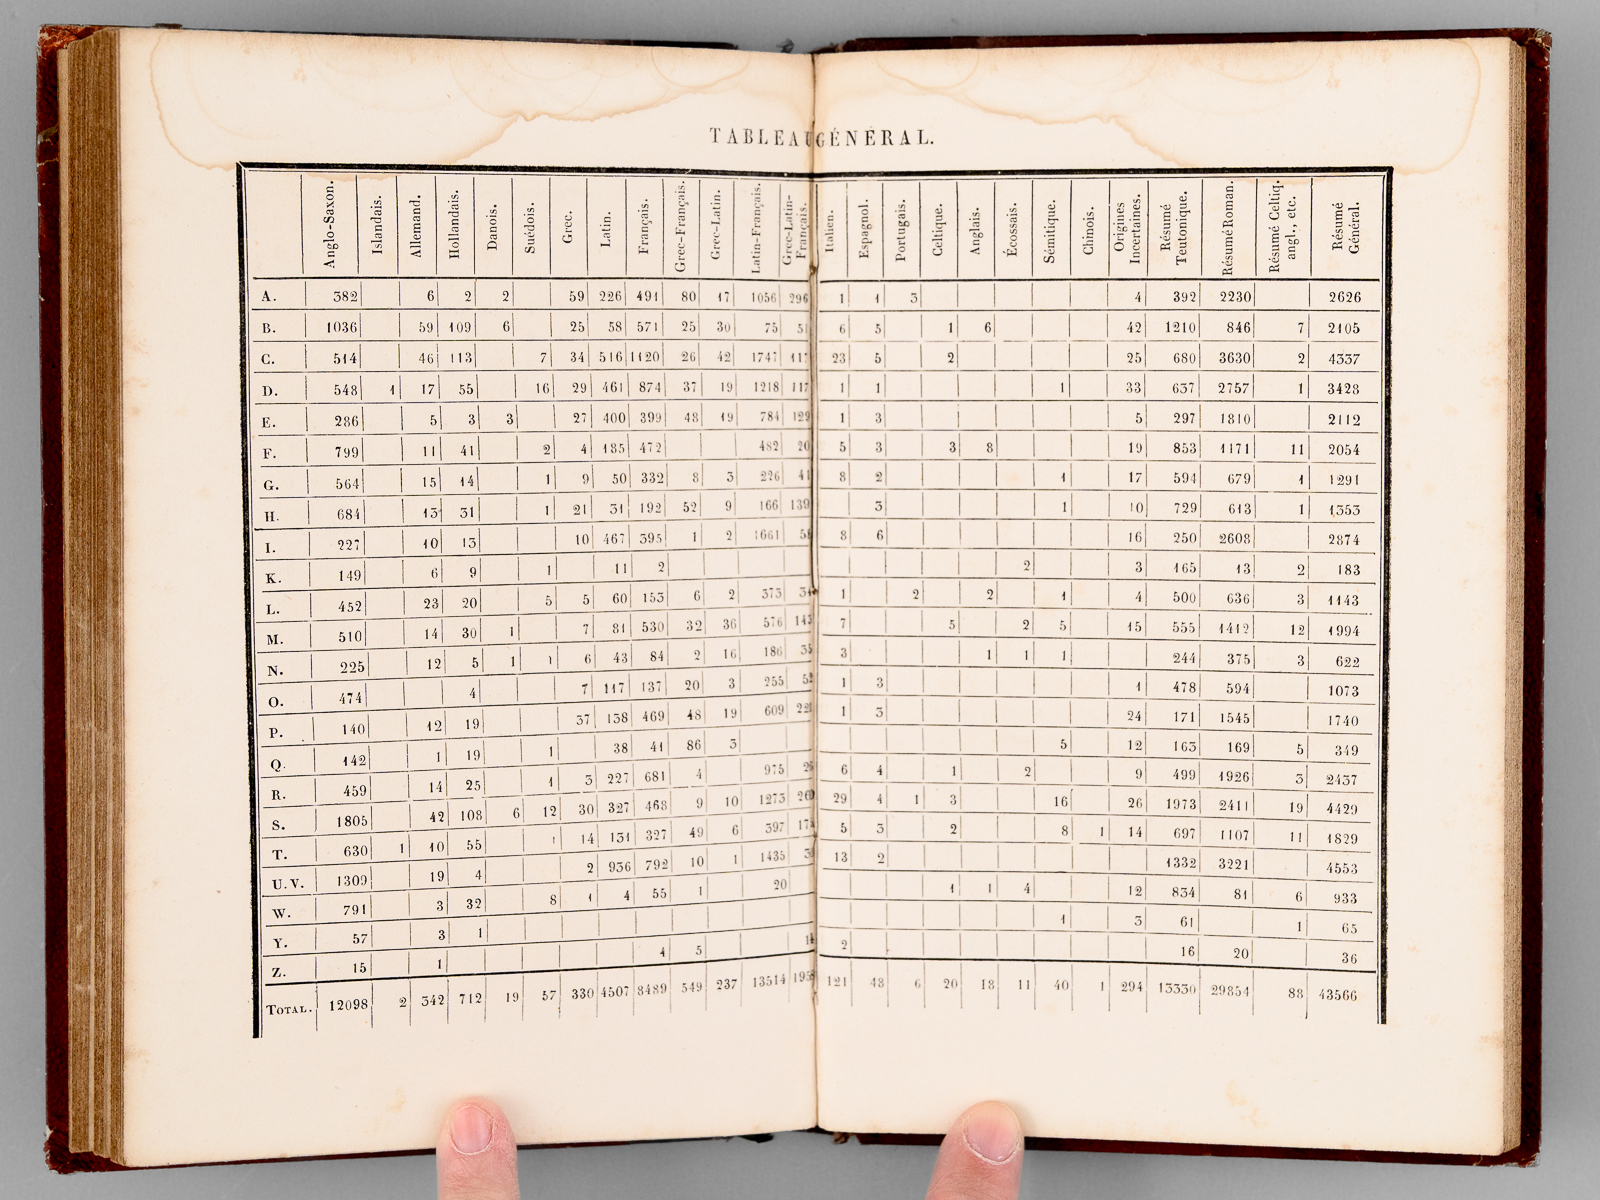 TABLEAU GÉNÉRAL.
Anglo-Saxon. Islandais. Allemand. Hollandais. Danois. Suédois. Grec. Latin. Français. Grec-Français. Grec-Latin. Latin-Français. Grec-Latin-Français. Italien. Espagnol. Portugais. Celtique. Anglais. Écossais. Sémitique. Chinois. Origines Incertaines. Résumé Teutonique. Résumé Roman. Résumé Celtiq. angl., etc. Résumé Général.
A. 382 6 2 2 59 226 491 80 17 1056 296 1 1 3 4 392 2230 2626
B. 1036 59 109 6 25 58 571 25 30 75 51 6 5 1 6 42 1210 846 7 2105
C. 514 46 113 7 34 516 1120 26 42 1747 117 23 5 2 25 680 3630 2 4337
D. 548 1 17 55 16 29 461 874 37 19 1218 117 1 1 1 33 637 2757 1 3428
E. 286 5 3 3 27 400 399 48 19 784 129 1 3 5 297 1810 2112
F. 799 11 41 2 4 185 472 482 20 5 3 3 8 19 853 1171 11 2054
G. 564 15 14 1 9 50 332 8 3 226 41 8 2 1 17 594 679 1 1291
H. 684 13 31 1 21 31 192 52 9 166 139 3 1 10 729 613 1 1353
I. 227 10 13 10 467 395 1 2 1661 58 8 6 16 250 2608 2874
K. 149 6 9 1 11 2 2 3 165 13 2 183
L. 452 23 20 5 5 60 153 6 2 373 34 1 2 2 1 4 500 636 3 1143
M. 510 14 30 1 7 81 530 32 36 576 143 7 5 2 5 15 555 1412 12 1994
N. 225 12 5 1 1 6 43 84 2 16 186 35 3 1 1 1 244 375 3 622
O. 474 4 7 117 137 20 3 255 52 1 3 1 478 594 1073
P. 140 12 19 37 138 469 48 19 609 221 1 3 24 171 1545 1740
Q. 142 1 19 1 38 41 86 3 5 12 163 169 5 349
R. 459 14 25 1 3 227 681 4 975 26 6 4 1 2 9 499 1926 3 2437
S. 1805 42 108 6 12 30 327 468 9 10 1273 260 29 4 1 3 16 26 1973 2411 19 4429
T. 630 1 10 55 1 14 131 327 49 6 397 174 5 3 2 8 1 14 697 1107 11 1829
U.V. 1309 19 4 2 936 792 10 1 1435 13 2 1332 3221 4553
W. 791 3 32 8 1 4 55 1 20 1 1 4 12 834 81 6 933
Y. 57 3 1 1 3 61 1 65
Z. 15 1 4 5 2 16 20 36
TOTAL. 12098 2 342 712 19 57 330 4507 8489 549 237 13514 1958 121 48 6 20 18 11 40 1 294 13330 29854 88 43566